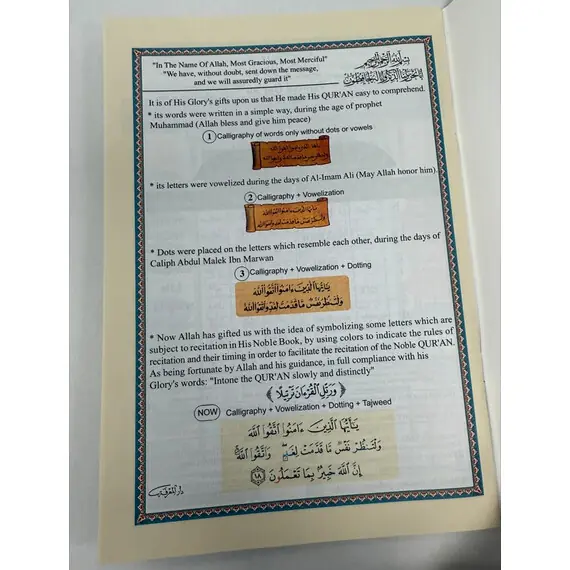 "In The Name Of Allah, Most Gracious, Most Merciful"
"We have, without doubt, sent down the message,
and we will assuredly guard it"
بسم الله الرحمن الرحيم
It is of His Glory's gifts upon us that He made His QUR'AN easy to comprehend.
* its words were written in a simple way, during the age of prophet
Muhammad (Allah bless and give him peace)
1 Calligraphy of words only without dots or vowels
* its letters were vowelized during the days of Al-Imam Ali (May Allah honor him).
2 Calligraphy + Vowelization
* Dots were placed on the letters which resemble each other, during the days of
Caliph Abdul Malek Ibn Marwan
3 Calligraphy + Vowelization + Dotting
يَٰٓأَيُّهَا ٱلَّذِينَ ءَامَنُوا۟ ٱتَّقُوا۟ ٱللَّهَ
وَلْتَنظُرْ نَفْسٌ مَّا قَدَّمَتْ لِغَدٍ وَٱتَّقُوا۟ ٱللَّهَ
* Now Allah has gifted us with the idea of symbolizing some letters which are
subject to recitation in His Noble Book, by using colors to indicate the rules of
recitation and their timing in order to facilitate the recitation of the Noble QUR'AN.
As being fortunate by Allah and his guidance, in full compliance with his
Glory's words: "Intone the QUR'AN slowly and distinctly"
﴿ وَرَتِّلِ ٱلْقُرْءَانَ تَرْتِيلًا ﴾
NOW Calligraphy + Vowelization + Dotting + Tajweed
يَٰٓأَيُّهَا ٱلَّذِينَ ءَامَنُوا۟ ٱتَّقُوا۟ ٱللَّهَ
وَلْتَنظُرْ نَفْسٌ مَّا قَدَّمَتْ لِغَدٍ ۖ وَٱتَّقُوا۟ ٱللَّهَ ۚ
إِنَّ ٱللَّهَ خَبِيرٌۢ بِمَا تَعْمَلُونَ ١٨
دار المعرفة